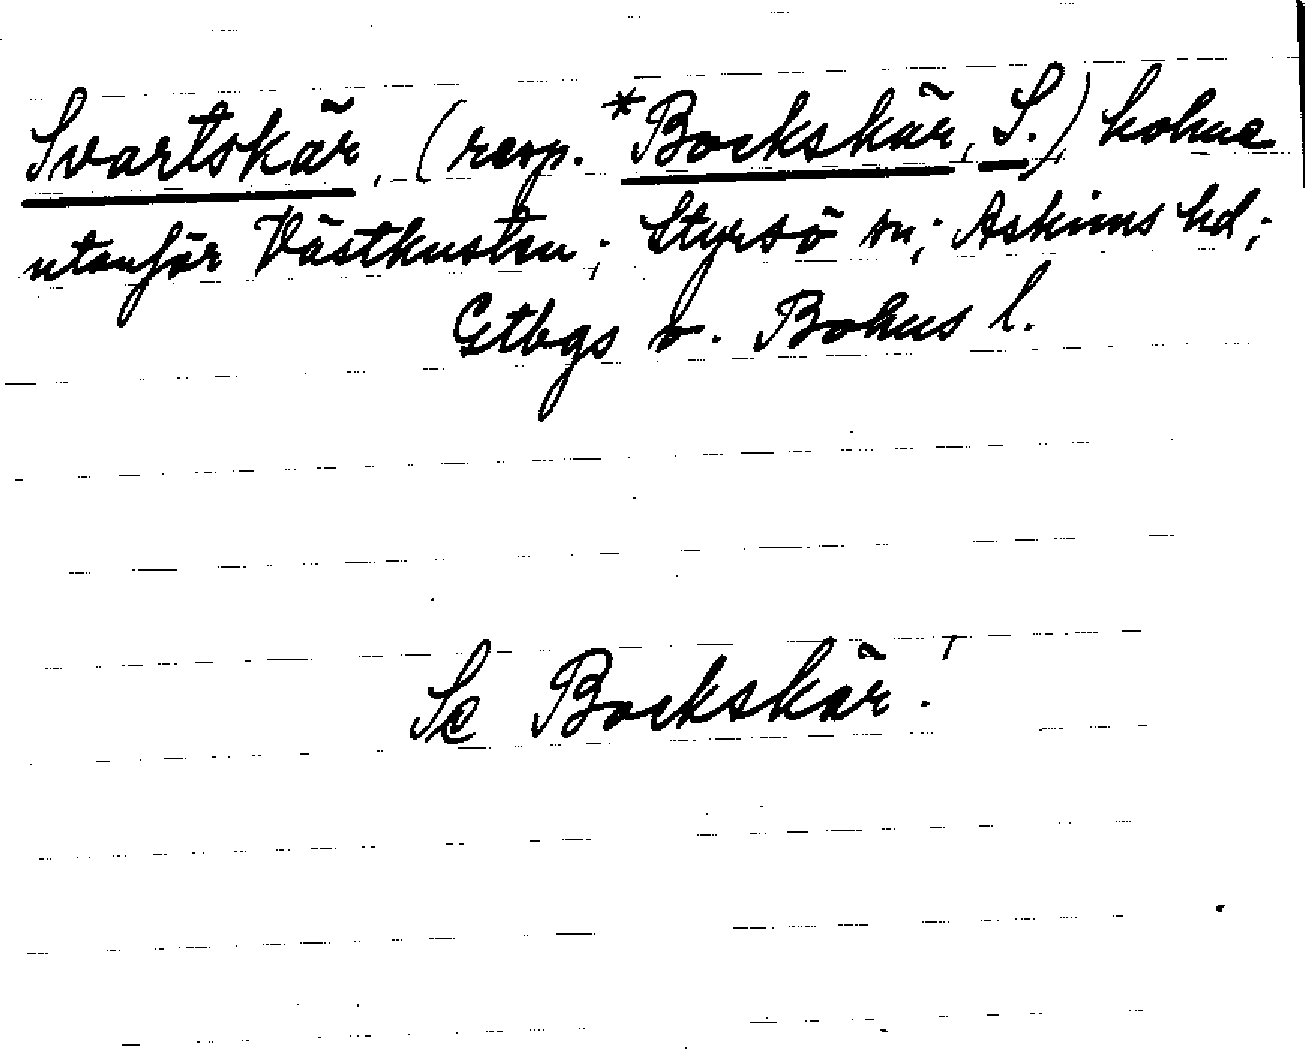 Svartskär, (resp. *Bockskär, S.) holme
utanför Västkusten; Styrsö sn; Askims hd;
Gtbgs o. Bohus l.
Se Bockskär!